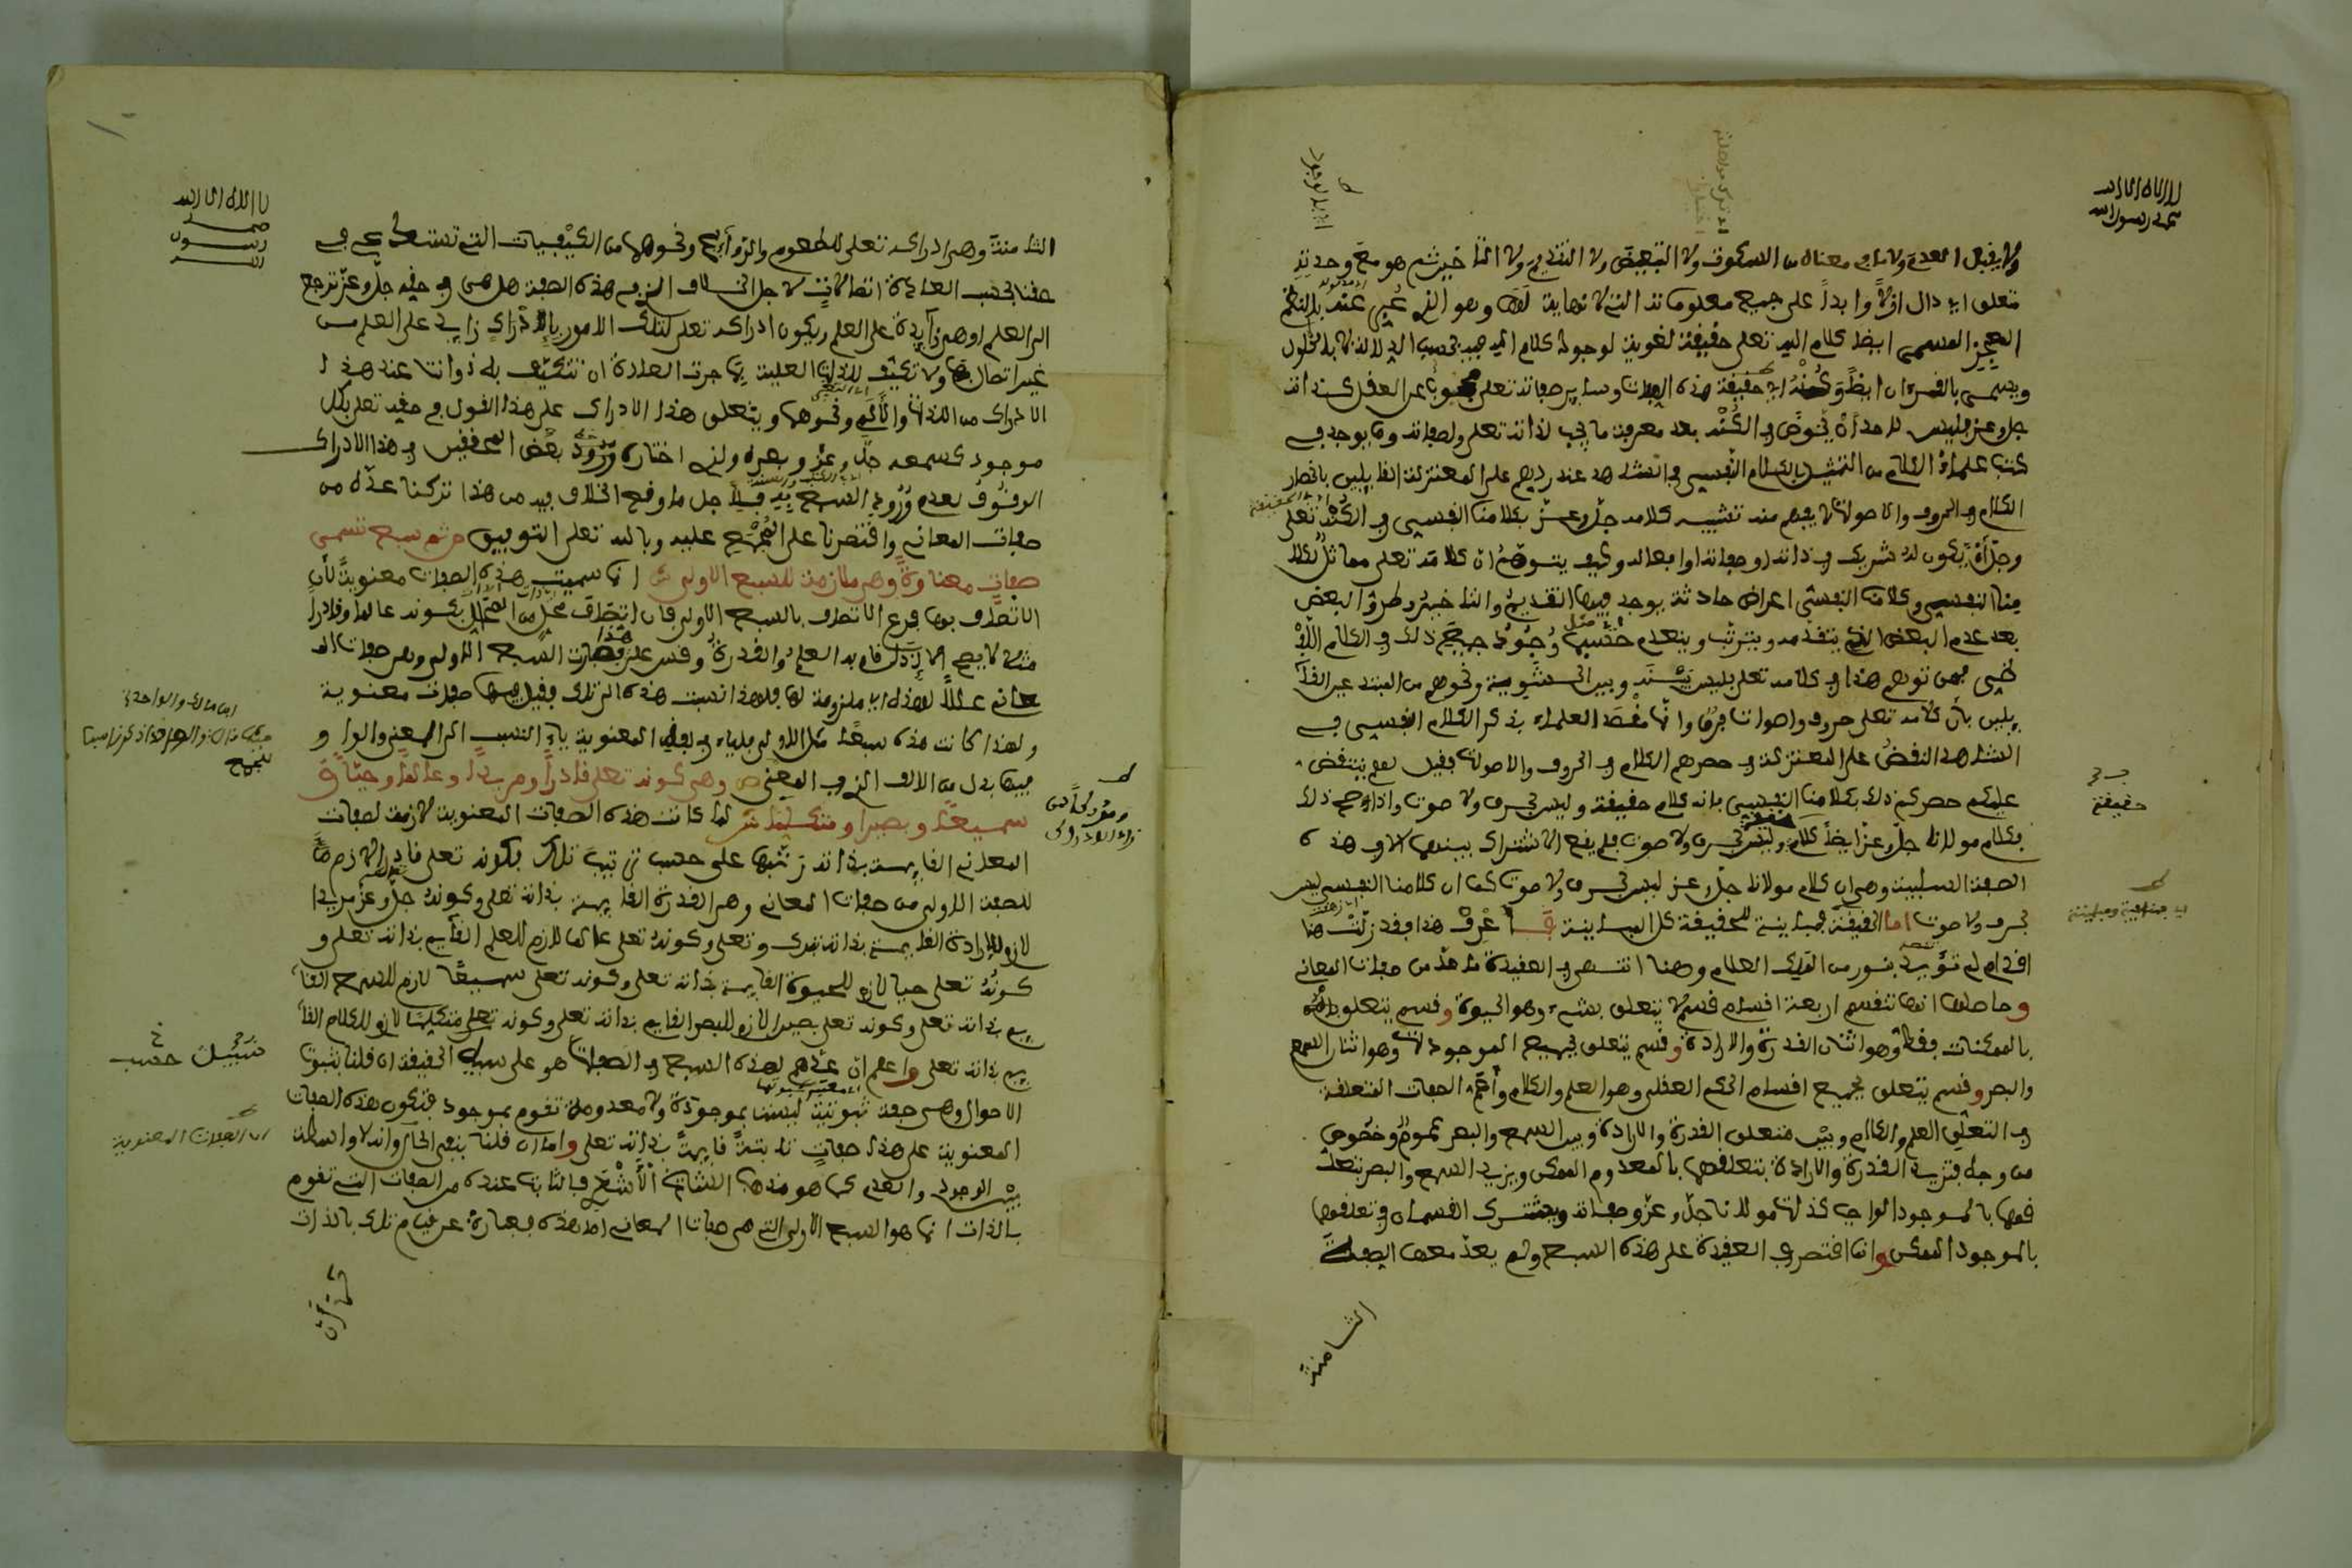 لا إله إلا الله
محمد رسول الله
ولا يقبل العدم ولا ما في معناه من السكوت ولا التبعيض ولا التقديم ولا التأخير ثم هو مع وحدته
متعلق أي دال أزلا وأبدا على جميع معلوماته التي لا نهاية لها وهو الذي عبر عنه بالنظم
المعجز المسمى أيضا بكلام الله تعلى حقيقة لغوية لوجود كلامه فيه بحسب الدلالة لا بالحلول
ويسمى بالقرءان أيضا وكنه أي حقيقة هذه الصفة وسائر صفاته تعلى محجوب عن العقل كذاته
جل وعز فليس لأحد أن يخوض في الكنه بعد معرفة ما يجب لذاته تعلى ولصفاته وما يوجد في
كتب علماء الكلام من التمثيل بالكلام النفسي في الشاهد عند ردهم على المعتزلة القائلين بانحصار
الكلام في الحروف والأصوات لا يفهم منه تشبيه كلامه جل وعز بكلامنا النفسي في الكنه تعلى
وجل أن يكون له شريك في ذاته أو صفاته أو أفعاله وكيف يتوهم أن كلامه تعلى مماثل لكلا
منا النفسي وكلامنا النفسي أعراض حادثة يوجد فيها التقديم والتأخير وطرو البعض
بعد عدم البعض الذي يتقدمه ويترتب وينعدم حسب وجود جميع ذلك في الكلام اللفـ
ظي فمن توهم هذا في كلامه تعلى فليس بينه وبين الحشوية ونحوهم من المبتدعة القا
يلين بأن كلامه تعلى حروف وأصوات فرق وإنما مقصد العلماء بذكر الكلام النفسي في
الشاهد النقض على المعتزلة في حصرهم الكلام في الحروف والأصوات فقيل لهم ينتقض
عليكم حصركم ذلك بكلامنا النفسي فإنه كلام حقيقة وليس بحرف ولا صوت وإذا صح ذلك
فكلام مولانا جل وعز أيضا كلام وليس بحرف ولا صوت فلم يقع الاشتراك بينهما إلا في هذه
الصفة السلبية وهي أن كلام مولانا جل وعز ليس بحرف ولا صوت كما أن كلامنا النفسي ليس
بحرف ولا صوت أما الحقيقة فمباينة للحقيقة كل المباينة فاعرف هذا فقد زلت هنا
أقدام لم تؤيد بنور من الملك العلام وهنا انتهى في العقيدة ما عد من صفات المعاني
وحاصلها أنها تنقسم أربعة أقسام قسم لا يتعلق بشيء وهو الحيوة وقسم يتعلق
بالممكنات فقط وهو اثنان القدرة والإرادة وقسم يتعلق بجميع الموجودات وهو اثنان السمع
والبصر وقسم يتعلق بجميع أقسام الحكم العقلي وهو العلم والكلام وأعم الصفات المتعلقة
في التعلق العلم والكلام وبين متعلق القدرة والإرادة وبين السمع والبصر عموم وخصوص
من وجه فتزيد القدرة والإرادة بتعلقهما بالمعدوم الممكن ويزيد السمع والبصر بتعلـ
قهما بالموجود الواجب كذات مولانا جل وعز وصفاته ويشترك القسمان في تعلقهما
بالموجود الممكن وإنما اقتصر في العقيدة على هذه السبع ولم يعد معها الصفة
الثامنة
حقيقة
لا إله إلا الله
محمد
رسول
الله
الثامنة وهي إدراكه تعلى للطعوم والروائح ونحوها من الكيفيات التي تستدعي في
حقنا بحسب العادة اتصالات لأجل الخلاف الذي في هذه الصفة هل هي في حقه جل وعز ترجع
إلى العلم أو هي زائدة على العلم ويكون إدراكه تعلى لتلك الأمور بالإدراك زايد على العلم من
غير اتصال بها ولا تكيف للذات العلية بما جرت العادة أن تتكيف به ذواتنا عند هذا
الإدراك من اللذات والآلام ونحوها ويتعلق هذا الإدراك على هذا القول في حقه تعلى بكل
موجود كسمعه جل وعز وبصره والذي اختاره بعض المحققين في هذا الإدراك
الوقوف لعدم ورود السمع به فلأجل ما وقع الخلاف فيه من هذا تركنا عده من
صفات المعاني واقتصرنا على المجمع عليه وبالله تعلى التوفيق ص ثم سبع تسمى
صفات معنوية وهي ملازمة للسبع الأولى ش إنما سميت هذه الصفات معنوية لأن
الاتصاف بها فرع الاتصاف بالسبع الأولى فإن اتصاف محل من المحال بكونه عالما وقادرا
مثلا لا يصح إلا إذا قام به العلم والقدرة وقس على هذا فصارت السبع الأولى وهي صفات المـ
عاني عللا لهذه أي ملزومة لها فلهذا نسبت هذه إلى تلك وقيل فيها صفات معنوية
ولهذا كانت هذه سبعا مثل الأولى فالياء في لفظ المعنوية ياء النسب إلى المعنى والواو
فيها بدل من الألف الذي في المعنى ص وهي كونه تعلى قادرا ومريدا وعالما وحيا و
سميعا وبصيرا ومتكلما ش لما كانت هذه الصفات المعنوية لازمة لصفات
المعاني القايمة بذاته رتبها على حسب ترتيب تلك فكونه تعلى قادرا لازم
للصفة الأولى من صفات المعاني وهي القدرة القايمة بذاته تعلى وكونه جل وعز مريدا
لازم للإرادة القايمة بذاته تبارك وتعلى وكونه تعلى عالما لازم للعلم القايم بذاته تعلى و
كونه تعلى حيا لازم للحيوة القايمة بذاته تعلى وكونه تعلى سميعا لازم للسمع القا
يم بذاته تعلى وكونه تعلى بصيرا لازم للبصر القايم بذاته تعلى وكونه تعلى متكلما لازم للكلام القا
يم بذاته تعلى واعلم أن عدهم لهذه السبع في الصفات هو على سبيل الحقيقة إن قلنا بثبوت
الأحوال وهي صفة ثبوتية ليست بموجودة ولا معدومة تقوم بموجود فتكون هذه الصفات
المعنوية على هذا صفات ثابتة قايمة بذاته تعلى وأما إن قلنا بنفي الحال وأنه لا واسطة
بين الوجود والعدم كما هو مذهب الأشعري فالثابت عنده من الصفات التي تقوم
بالذات إنما هو السبع الأولى التي هي صفات المعاني أما هذه فعبارة عن قيام تلك بالذات